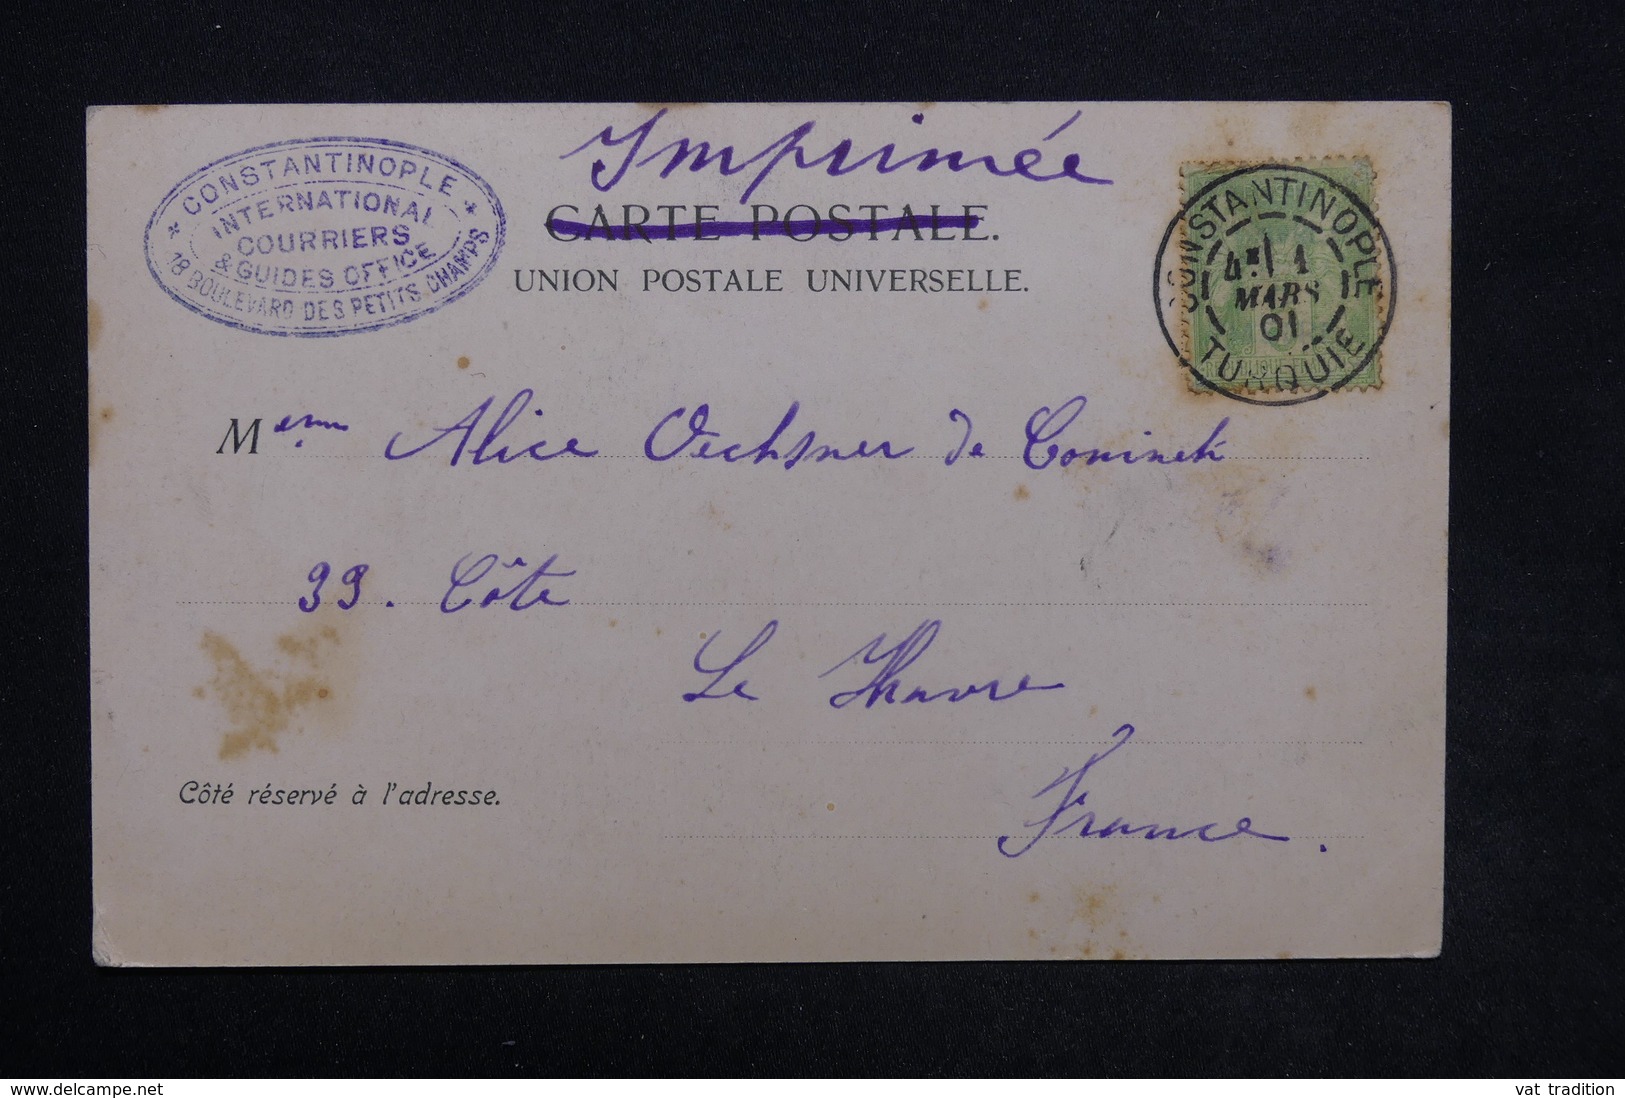 Imprimée
CARTE POSTALE.
UNION POSTALE UNIVERSELLE.
* CONSTANTINOPLE *
INTERNATIONAL
COURRIERS
& GUIDES OFFICE
18 BOULEVARD DES PETITS CHAMPS
CONSTANTINOPLE
1
MARS
01
TURQUIE
Alice Oechsner de Coninck
Côte
Le Havre
France.
Côté réservé à l'adresse.
delcampe.net
vat tradition